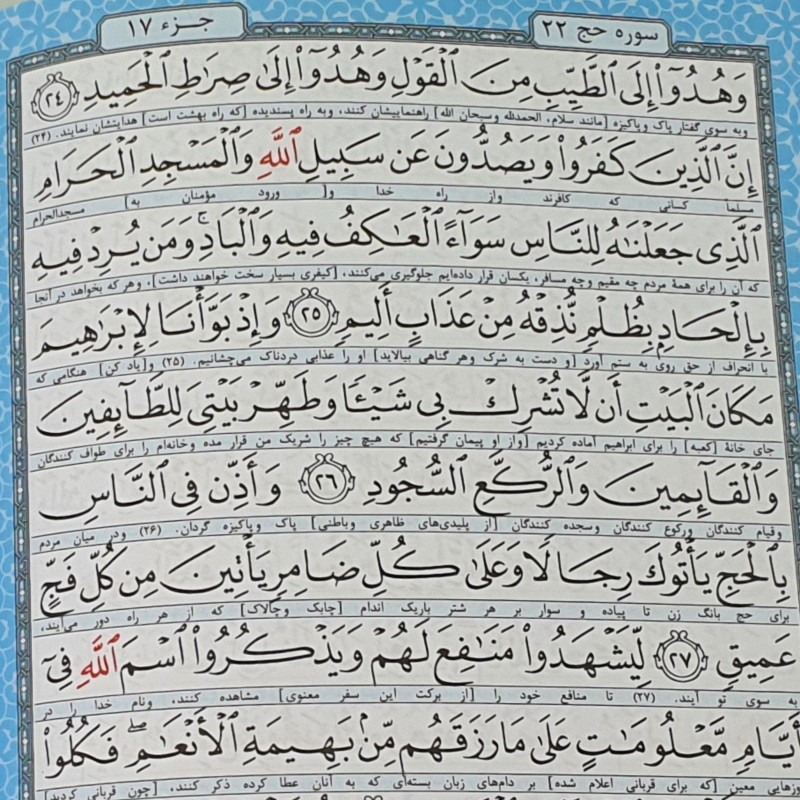 جزء ۱۷
سوره حج ۲۲
وَهُدُوٓاْ إِلَى ٱلطَّيِّبِ مِنَ ٱلْقَوْلِ وَهُدُوٓاْ إِلَىٰ صِرَٰطِ ٱلْحَمِيدِ ۲۴
وبه سوی گفتار پاک وپاکیزه [مانند سلام، الحمدلله وسبحان الله] راهنماییشان کنند، وبه راه پسندیده [که راه بهشت است] هدایتشان نمایند. (۲۴)
إِنَّ ٱلَّذِينَ كَفَرُواْ وَيَصُدُّونَ عَن سَبِيلِ ٱللَّهِ وَٱلْمَسْجِدِ ٱلْحَرَامِ
مسلماً کسانی که کافرند واز راه خدا و[ ورود مؤمنان به] مسجدالحرام
ٱلَّذِى جَعَلْنَٰهُ لِلنَّاسِ سَوَآءً ٱلْعَٰكِفُ فِيهِ وَٱلْبَادِۚ وَمَن يُرِدْ فِيهِ
که آن را برای همهٔ مردم چه مقیم وچه مسافر، یکسان قرار داده‌ایم جلوگیری می‌کنند، [کیفری بسیار سخت خواهند داشت]، وهر که بخواهد در آنجا
بِإِلْحَادٍۭ بِظُلْمٍ نُّذِقْهُ مِنْ عَذَابٍ أَلِيمٍ ۲۵ وَإِذْ بَوَّأْنَا لِإِبْرَٰهِيمَ
با انحراف از حق روی به ستم آورد [و دست به شرک وهر گناهی بیالاید] او را عذابی دردناک می‌چشانیم. (۲۵) و[یاد کن] هنگامی که
مَكَانَ ٱلْبَيْتِ أَن لَّا تُشْرِكْ بِى شَيْـًٔا وَطَهِّرْ بَيْتِىَ لِلطَّآئِفِينَ
جای خانهٔ [کعبه] را برای ابراهیم آماده کردیم [واز او پیمان گرفتیم] که هیچ چیز را شریک من قرار مده وخانه‌ام را برای طواف کنندگان
وَٱلْقَآئِمِينَ وَٱلرُّكَّعِ ٱلسُّجُودِ ۲۶ وَأَذِّن فِى ٱلنَّاسِ
وقیام کنندگان ورکوع کنندگان وسجده کنندگان [از پلیدی‌های ظاهری وباطنی] پاک وپاکیزه گردان. (۲۶) ودر میان مردم
بِٱلْحَجِّ يَأْتُوكَ رِجَالًا وَعَلَىٰ كُلِّ ضَامِرٍ يَأْتِينَ مِن كُلِّ فَجٍّ
برای حج بانگ زن تا پیاده و سوار بر هر شتر باریک اندام [چابک وچالاک] که از هر راه دور می‌آیند،
عَمِيقٍ ۲۷ لِّيَشْهَدُواْ مَنَٰفِعَ لَهُمْ وَيَذْكُرُواْ ٱسْمَ ٱللَّهِ فِىٓ
به سوی تو آیند. (۲۷) تا منافع خود را [از برکت این سفر معنوی] مشاهده کنند، ونام خدا را در
أَيَّامٍ مَّعْلُومَٰتٍ عَلَىٰ مَا رَزَقَهُم مِّنۢ بَهِيمَةِ ٱلْأَنْعَٰمِۖ فَكُلُواْ
روزهایی معین [که برای قربانی اعلام شده] بر دام‌های زبان بسته‌ای که به آنان عطا کرده ذکر کنند، [چون قربانی کردید]